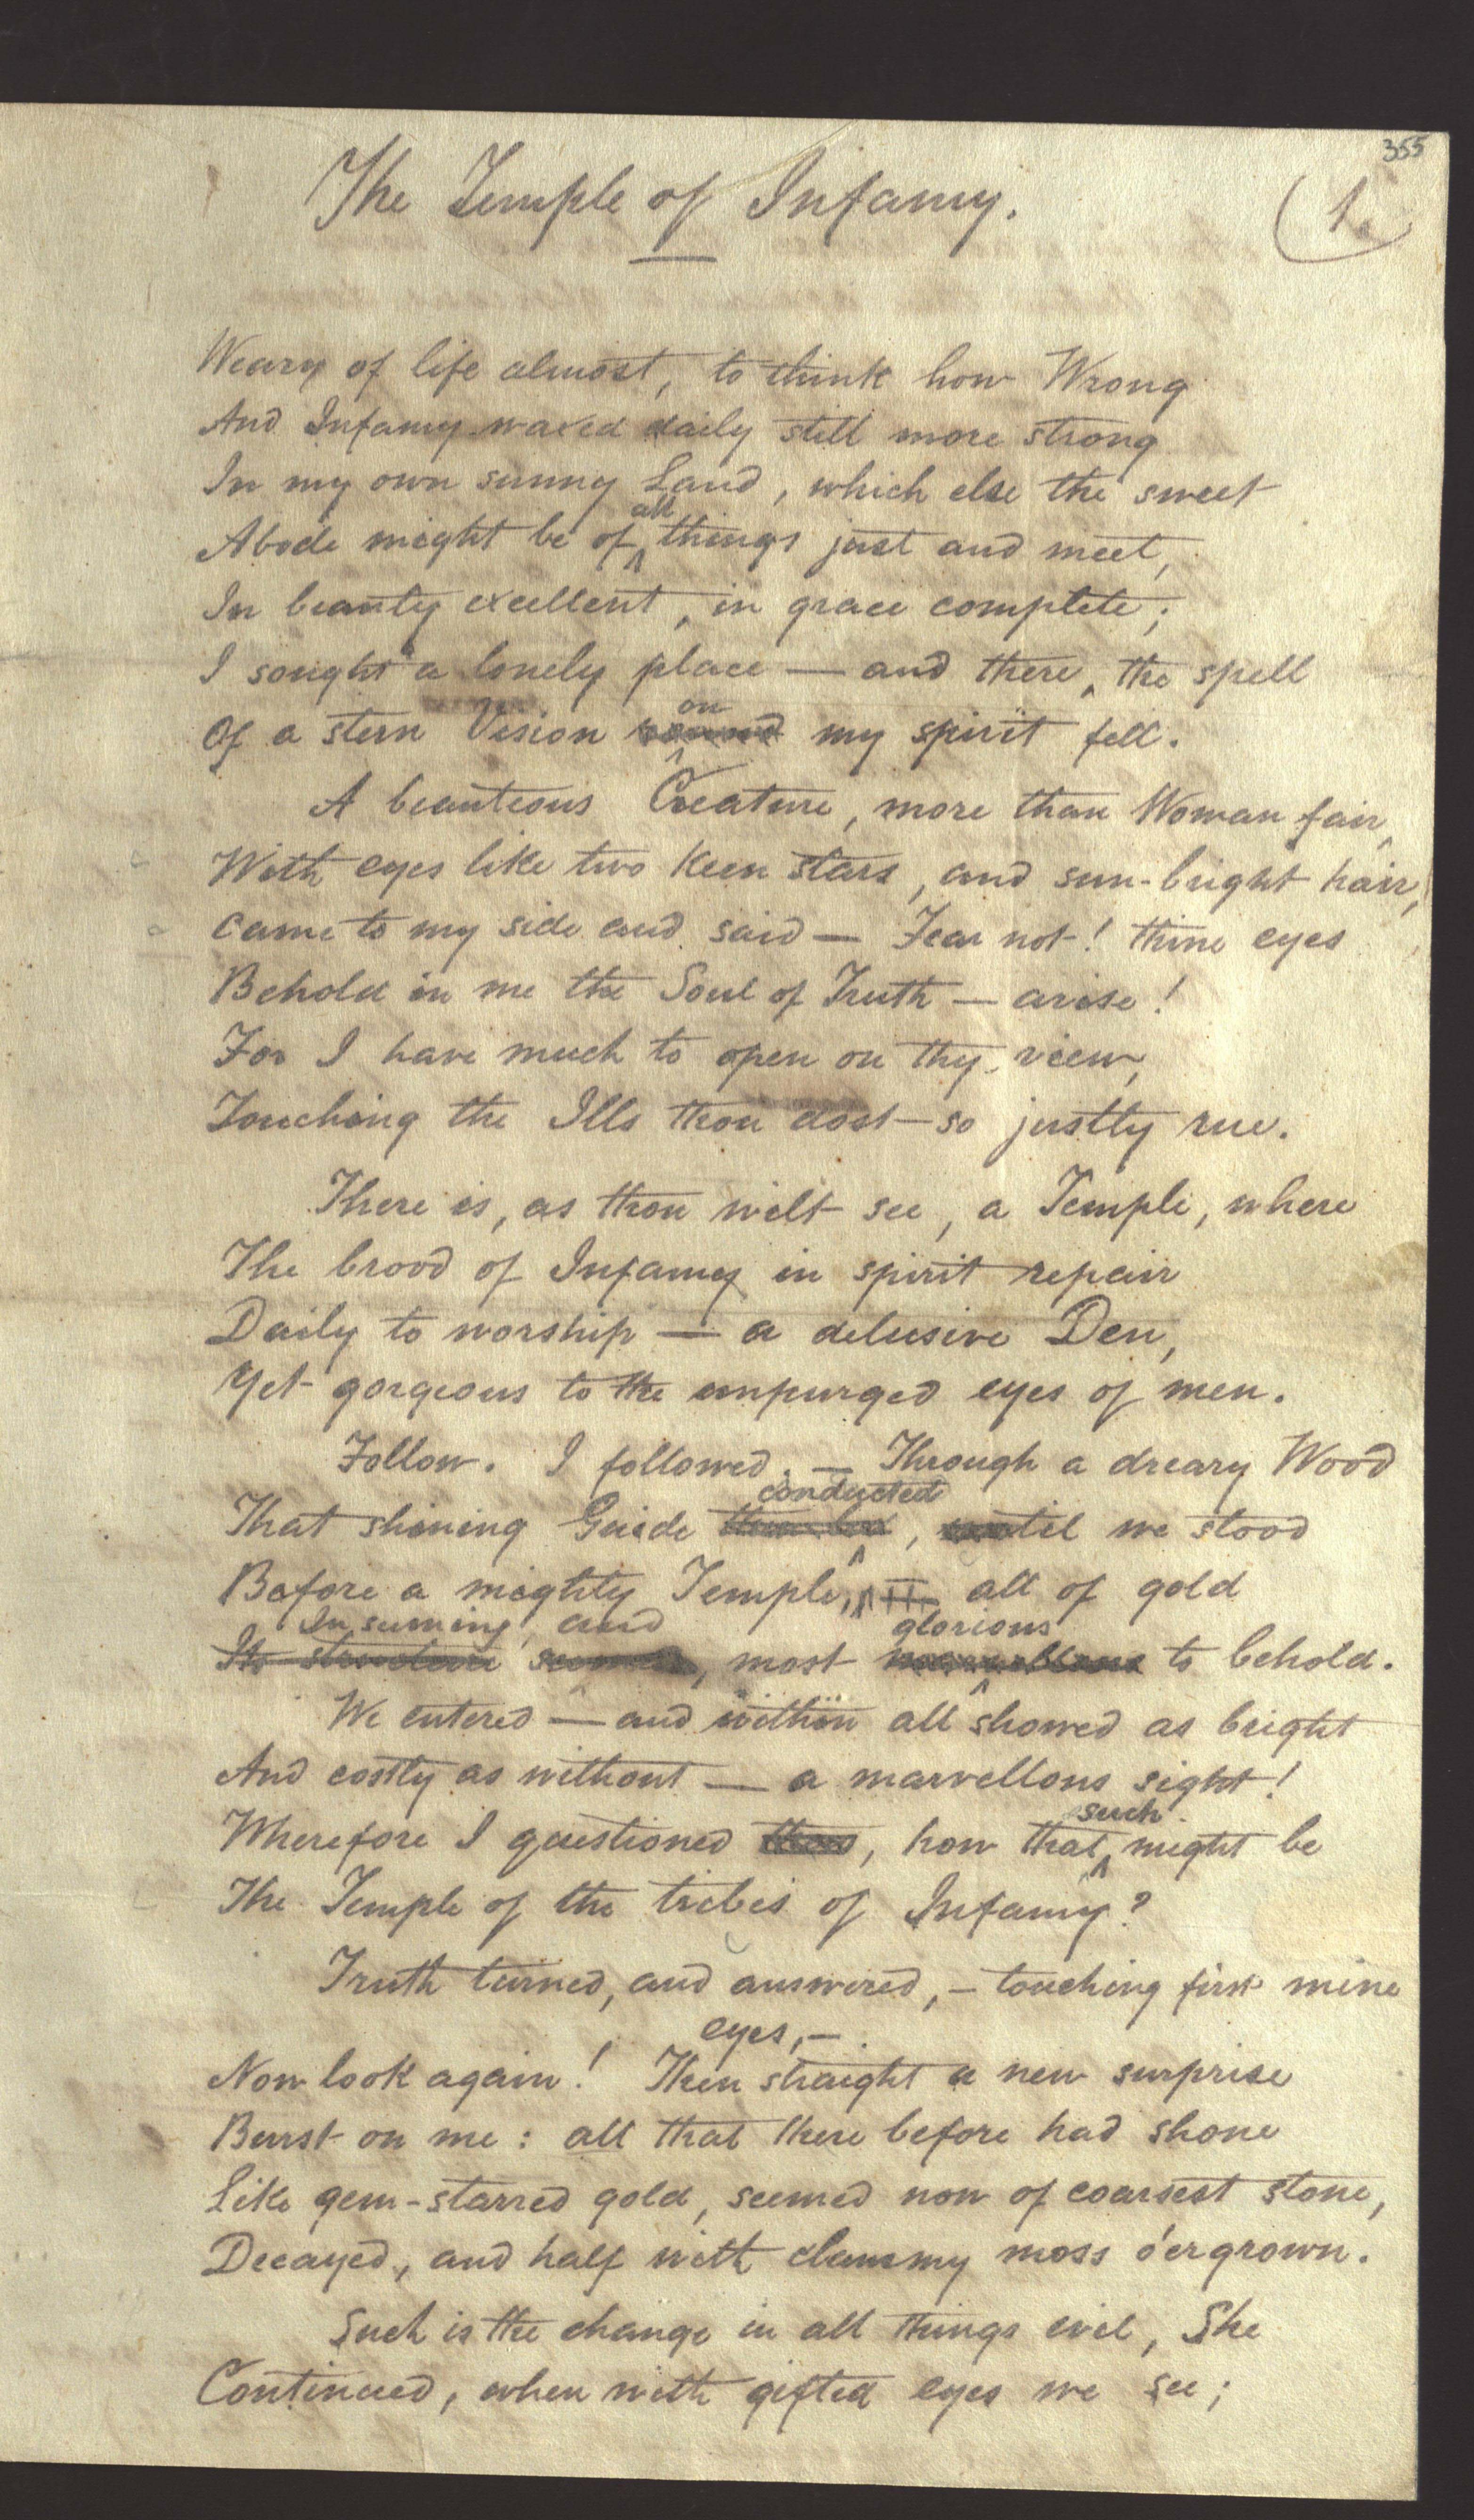 355
The Temple of Infamy.
1.
Weary of life almost, to think how Wrong
And Infamy waxed daily still more strong
In my own sunny Land, which else the sweet
all
Abode might be of things just and meet,
In beauty excellent, in grace complete;
I sought a lonely place — and there, the spell
on
Of a stern Vision round my spirit fell.
A beauteous Creature, more than Woman fair,
With eyes like two keen stars, and sun-bright hair,
Came to my side and said — Fear not! thine eyes
Behold in me the Soul of Truth — arise!
For I have much to open on thy view,
Touching the Ills thou dost so justly rue.
There is, as thou wilt see, a Temple, where
The brood of Infamy in spirit repair
Daily to worship — a delusive Den,
Yet gorgeous to the unpurged eyes of men.
Follow. I followed. — Through a dreary Wood
conducted
That shining Guide , until we stood
Before a mighty Temple, all of gold
In seeming, and glorious
Its structure seemed, most marvellous to behold.
We entered — and within all showed as bright
And costly as without — a marvellous sight!
such
Wherefore I questioned , how that might be
The Temple of the tribes of Infamy?
Truth turned, and answered, — touching first mine
eyes, —
Now look again! Then straight a new surprise
Burst on me: all that there before had shone
Like gem-starred gold, seemed now of coarsest stone,
Decayed, and half with clammy moss o'ergrown.
Such is the change in all things evil, She
Continued, when with gifted eyes we see;